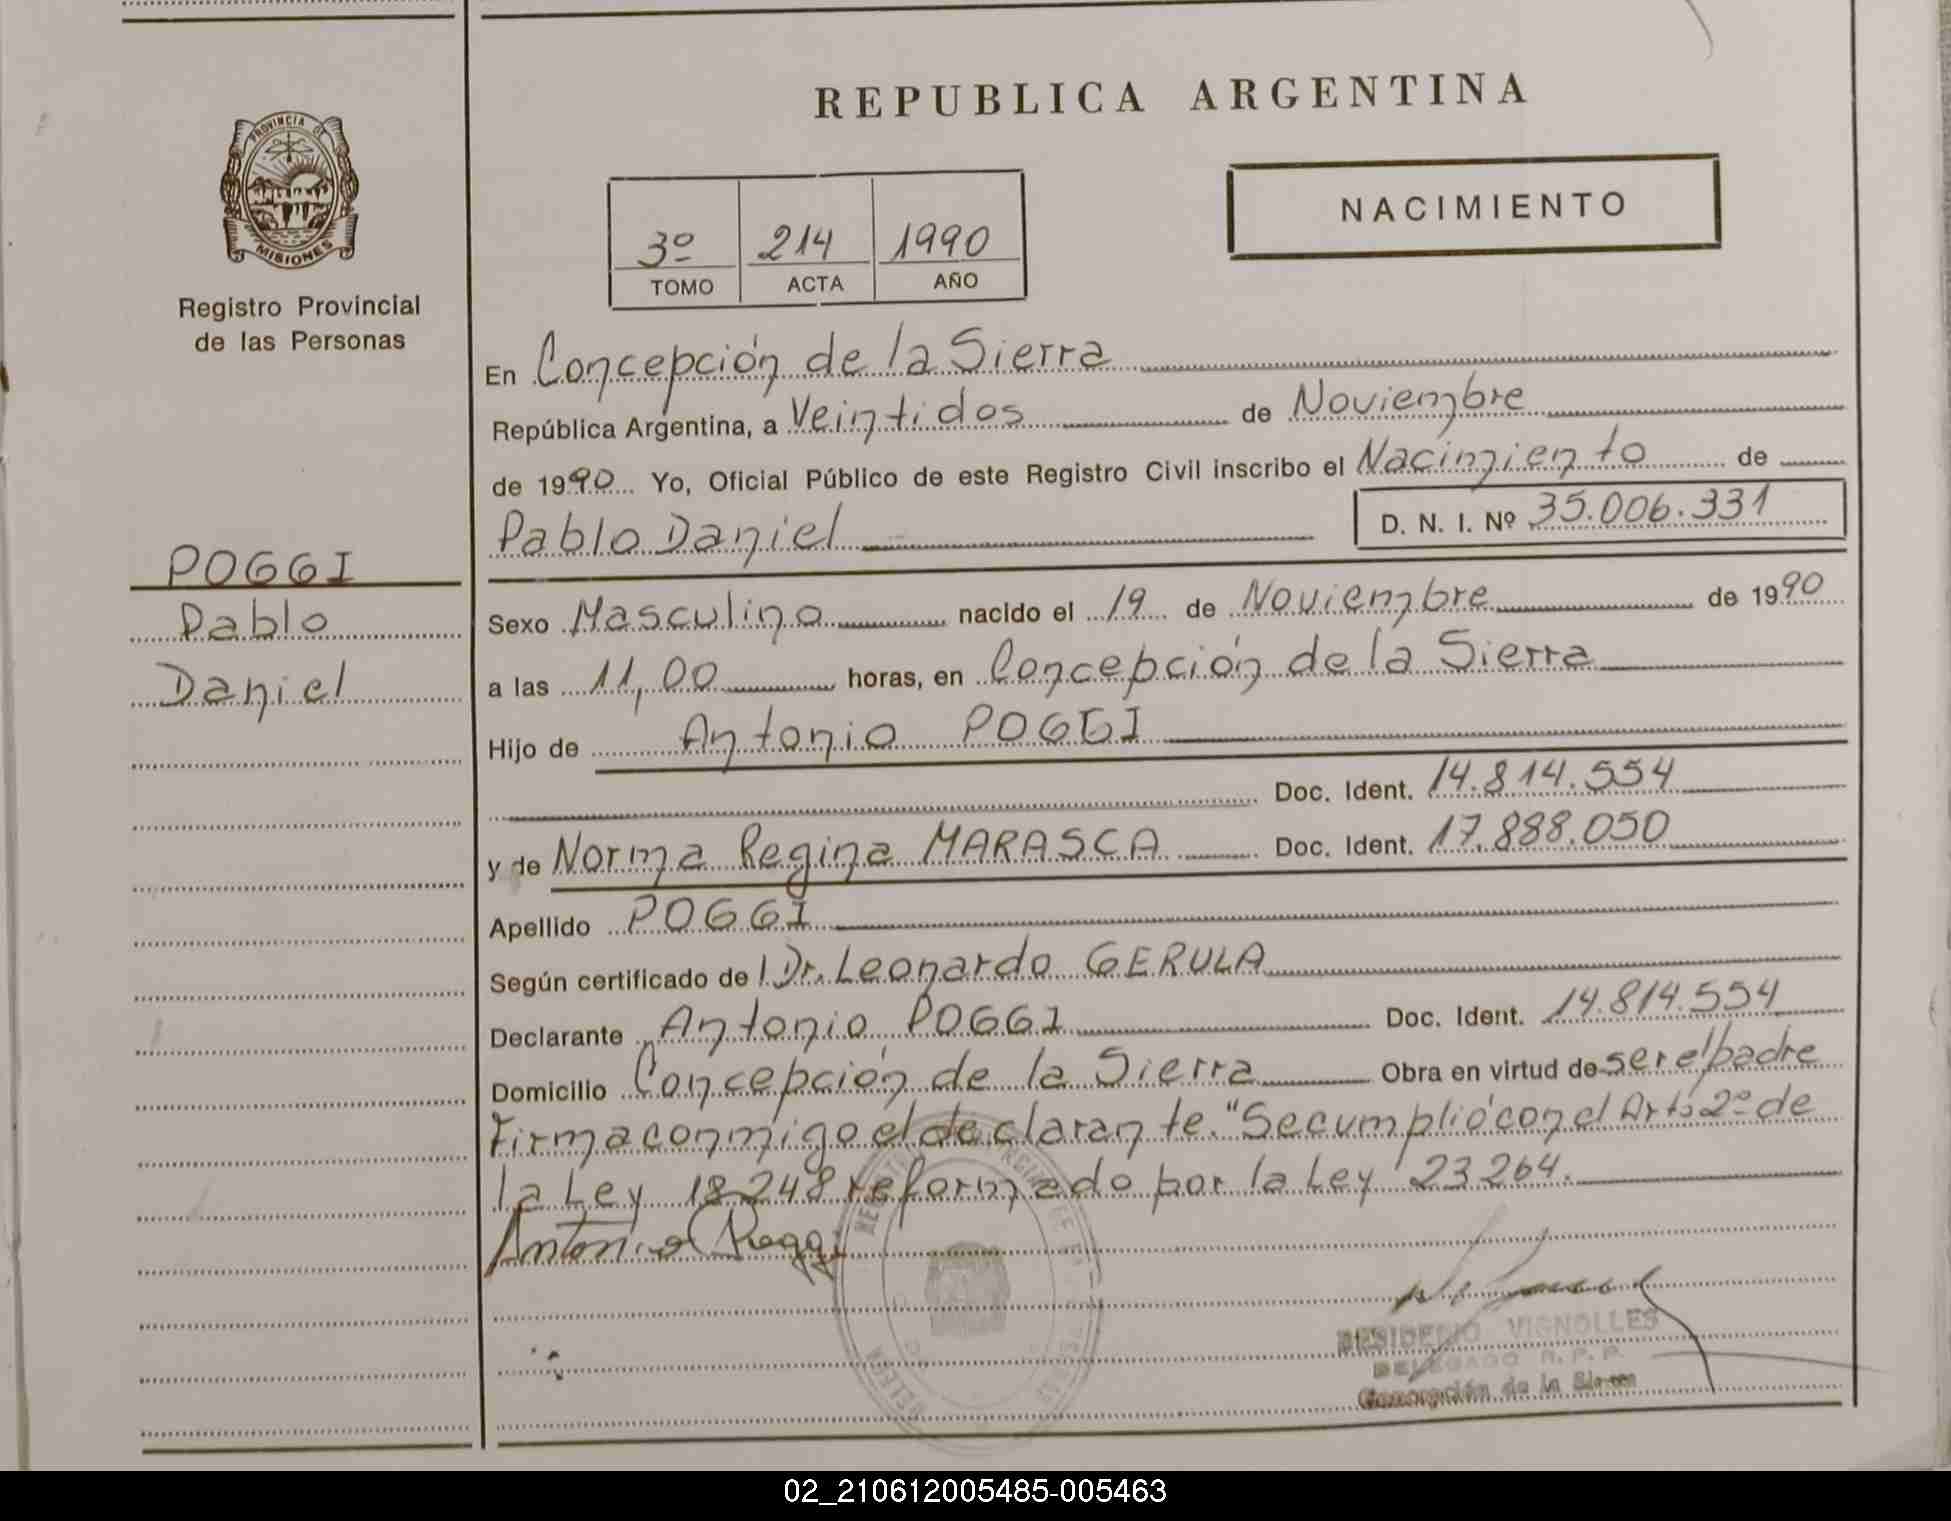 REPUBLICA ARGENTINA
PROVINCIA DE
MISIONES
Registro Provincial
de las Personas
NACIMIENTO
3º 214 1990
TOMO ACTA AÑO
En Concepción de la Sierra
República Argentina, a Veintidos de Noviembre
de 1990 Yo, Oficial Público de este Registro Civil inscribo el Nacimiento de
Pablo Daniel D. N. I. Nº 35.006.331
POGGI
Pablo
Daniel
Sexo Masculino nacido el 19 de Noviembre de 1990
a las 11,00 horas, en Concepción de la Sierra
Hijo de Antonio POGGI
Doc. Ident. 14.814.554
y de Norma Regina MARASCA Doc. Ident. 17.888.050
Apellido POGGI
Según certificado de Dr. Leonardo GERULA
Declarante Antonio POGGI Doc. Ident. 14.814.554
Domicilio Concepción de la Sierra Obra en virtud de ser el padre
Firma conmigo el declarante. "Se cumplió con el Art. 2º de
la Ley 18248 reformado por la Ley 23264.
Antonio Poggi
DESIDERIO VIGNOLLES
DELEGADO R. P. P.
Concepción de la Sierra
02_210612005485-005463